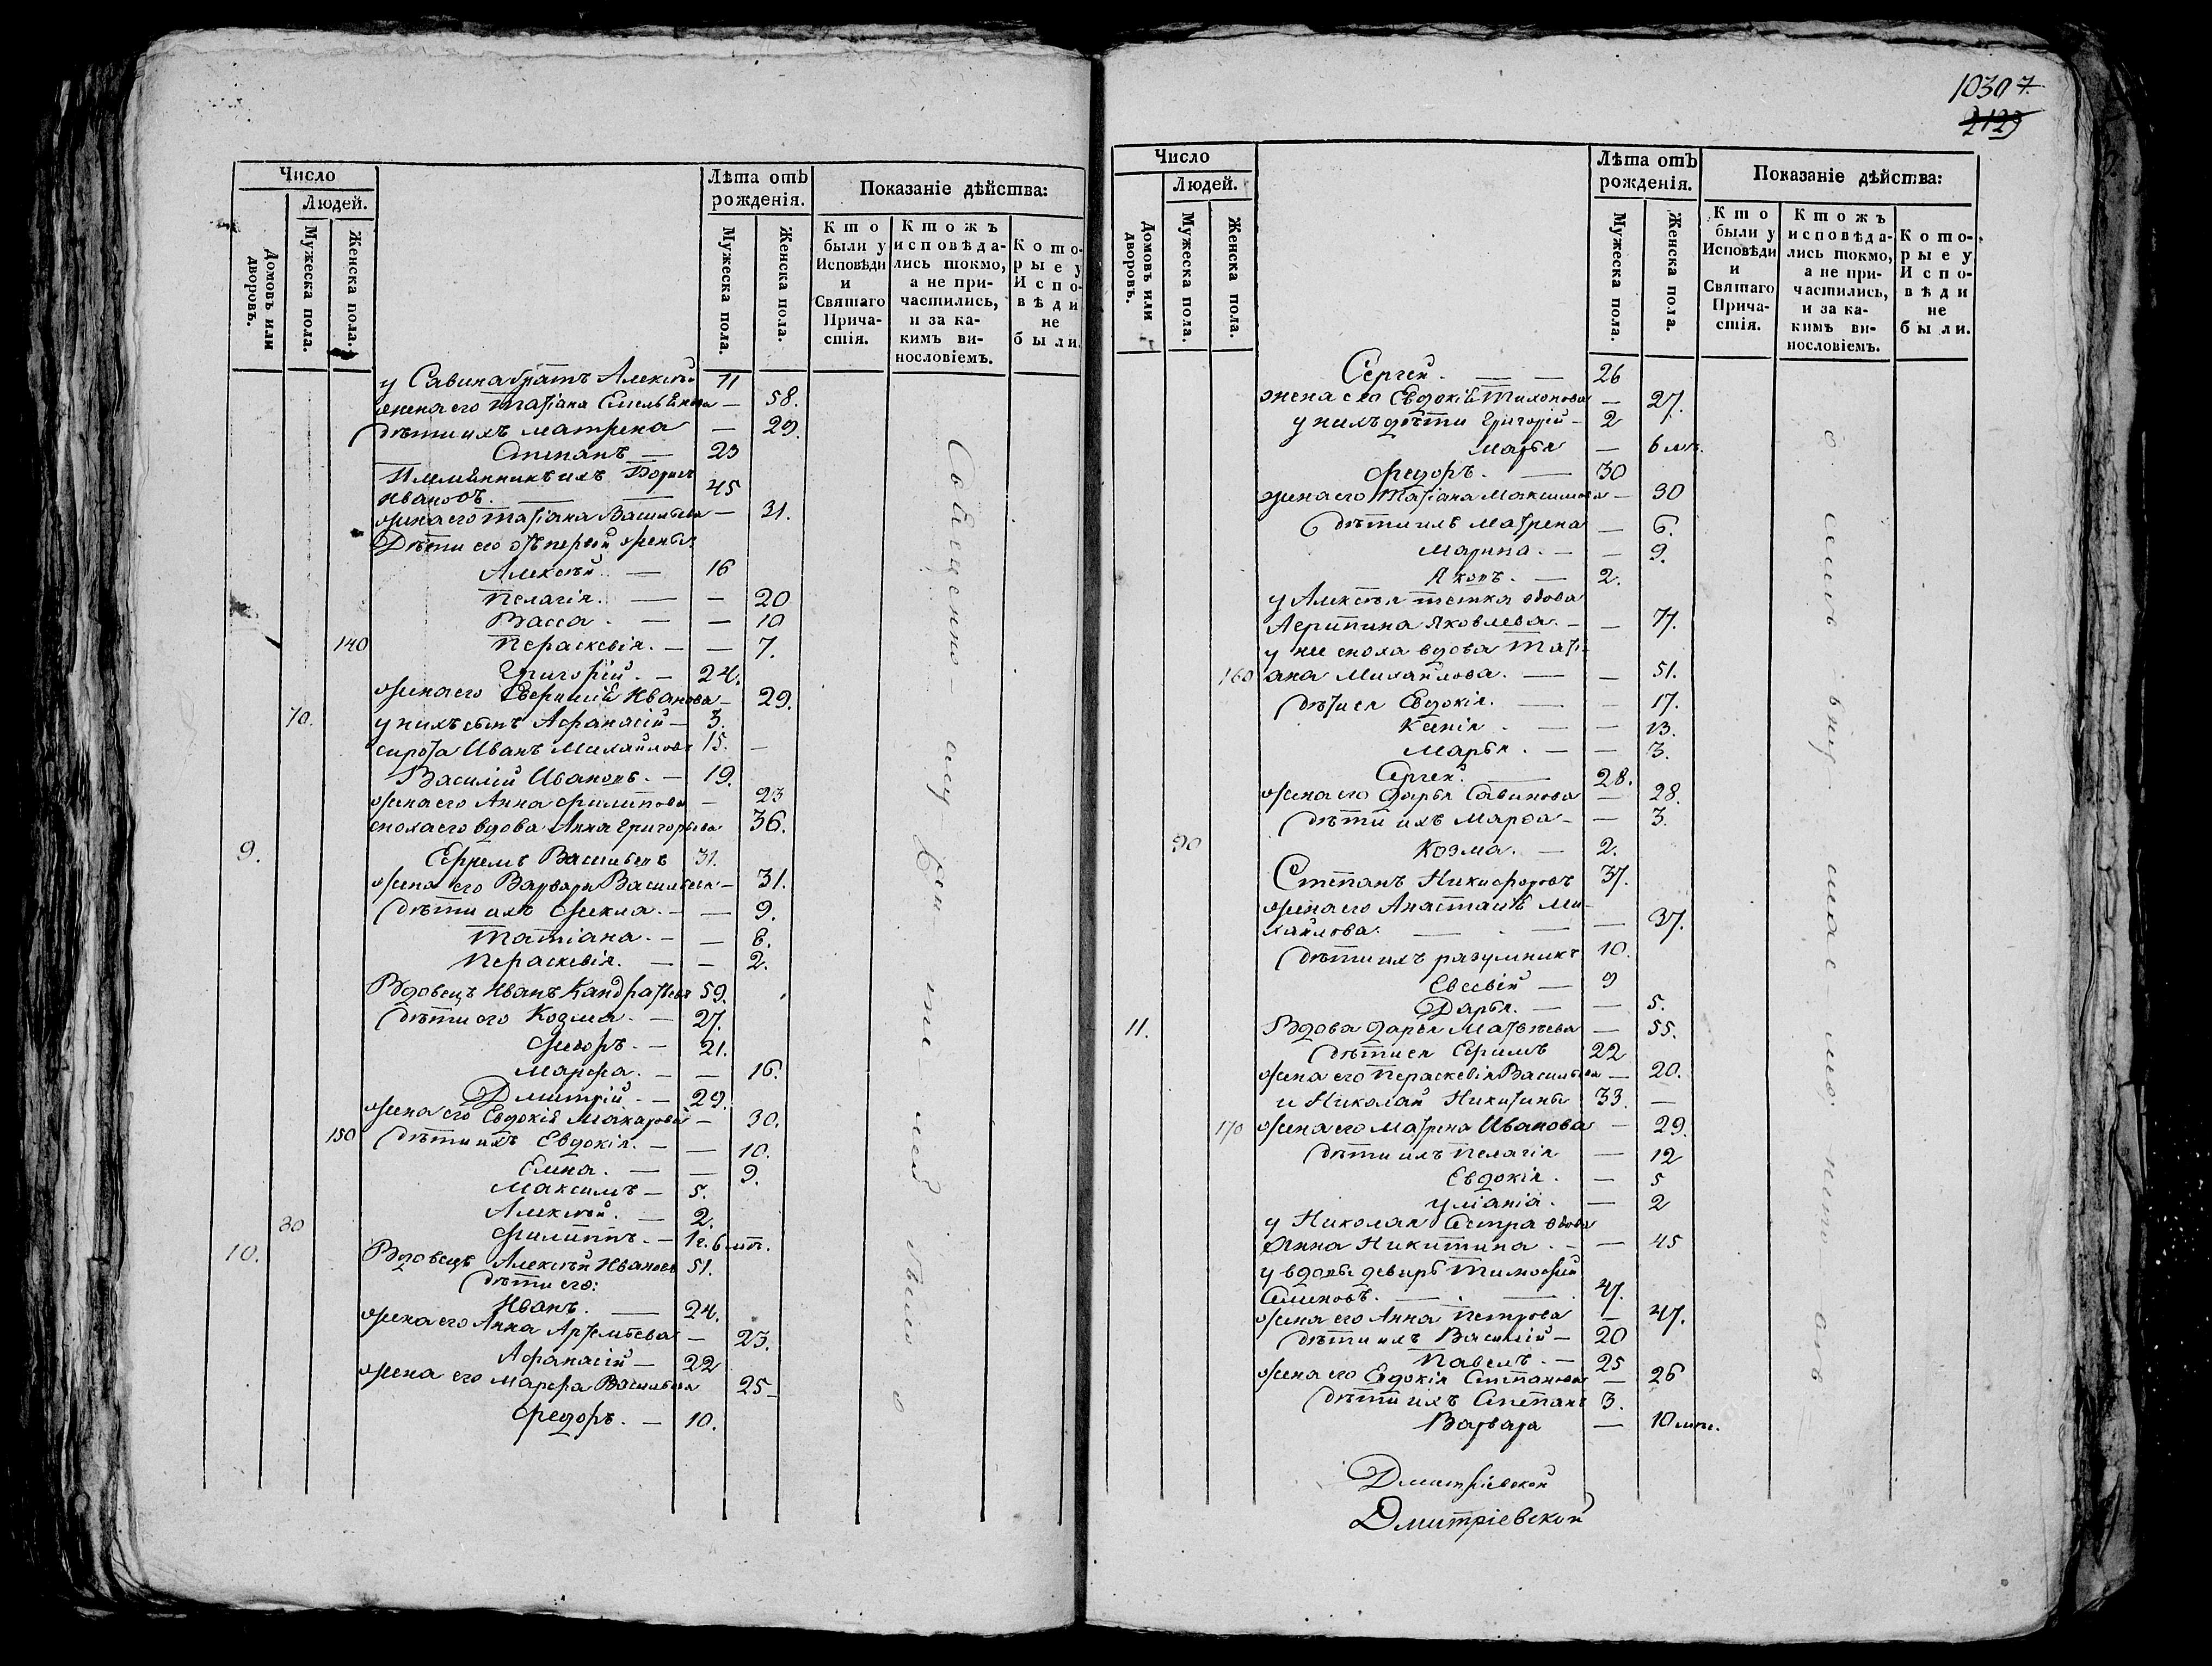 10307.
2129
Число
Людей.
Домовъ или дворовъ.
Мужеска пола.
Женска пола.
Лѣта отъ рожденія.
Мужеска пола.
Женска пола.
Показаніе дѣйства:
Кто были у Исповѣди и Святаго Причастія.
Ктожъ исповѣдались токмо, а не причастились, и за какимъ винословіемъ.
Которые у Исповѣди не были.
у Савина братъ Алексѣй 71
жена его Татіана Емельянова — 58.
дѣти ихъ Матрена — 29.
Степанъ — 23
Племянникъ ихъ Борисъ
Ивановъ. — 45
жена его Татіана Васильева — 31.
Дѣти его отъ первой жены
Алексѣй. — 16
Пелагія. — — 20
Васса. — — 10
140 Параскевія. — — 7.
Григорій. — 24.
жена его Евфимія Иванова — 29.
70. у нихъ сынъ Афанасій — 3.
сирота Иванъ Михайловъ 15. —
Василій Ивановъ. — 19.
жена его Анна Филипова — 23
сноха его вдова Анна Григорьева 36.
9. Ефремъ Васильевъ 31.
жена его Варвара Васильева — 31.
дѣти ихъ Фекла. — — 9.
Татіана. — — 8.
Параскевія. — — 2.
Вдовецъ Иванъ Кандратьевъ 59.
дѣти его Козма. — 27.
Федоръ. — 21.
Марфа. — — 16.
Дмитрій. — 29.
жена его Евдокія Макарова — 30.
150 дѣти ихъ Евдокія. — — 10.
Елена. — — 9.
Максимъ — 5.
Алексѣй. — 2.
80 Филиппъ. — 1г. 6 мѣ.
10. Вдовецъ Алексѣй Ивановъ 51.
дѣти его:
Иванъ. — 24.
жена его Анна Артемьева — 23.
Афанасій — 22
жена его Марфа Васильева 25 —
Федоръ. — 10.
Число
Людей.
Домовъ или дворовъ.
Мужеска пола.
Женска пола.
Лѣта отъ рожденія.
Мужеска пола.
Женска пола.
Показаніе дѣйства:
Кто были у Исповѣди и Святаго Причастія.
Ктожъ исповѣдались токмо, а не причастились, и за какимъ винословіемъ.
Которые у Исповѣди не были.
Сергей. — — 26
жена его Евдокія Тихонова — 27.
у нихъ дѣти Григорій — 2
Марья — 6 мѣ.
Федоръ. — 30
жена его Татіана Максимова — 30
дѣти ихъ Матрена — 6.
Марина. — — 9.
Яковъ. — 2.
у Алексѣя тетка вдова
Агрипина Яковлева. — — 77.
у нее сноха вдова Тати-
160 ана Михайлова. — — 51.
дѣти ея Евдокія. — — 17.
Ксенія — — 13.
Марья. — — 3.
Сергей. — 28.
жена его Дарья Савинова — 28.
дѣти ихъ Марѳа — — 3.
90 Козма. — 2.
Степанъ Никифоровъ 37.
жена его Анастасія Ми-
хайлова. — — 37.
дѣти ихъ Разумникъ 10.
Евсевій — 9
Дарья. — — 5.
11. Вдова Дарья Матвѣева — 55.
дѣти ея Ефимъ 22
жена его Параскевія Васильева — 20.
и Николай Никитины 33. —
170 жена его Матрена Иванова — 29.
дѣти ихъ Пелагія — 12
Евдокія. — 5
Уліанія. — 2
у Николая сестра вдова
Анна Никитина. — — 45
у вдовы деверь Тимофей
Семеновъ. — — 47.
жена его Анна Петрова — 47.
дѣти ихъ Василій — 20
Павелъ. — 25
жена его Евдокія Степанова — 26
дѣти ихъ Степанъ 3.
Варвара — 10 мѣ.
Дмитріевской
Дмитріевской